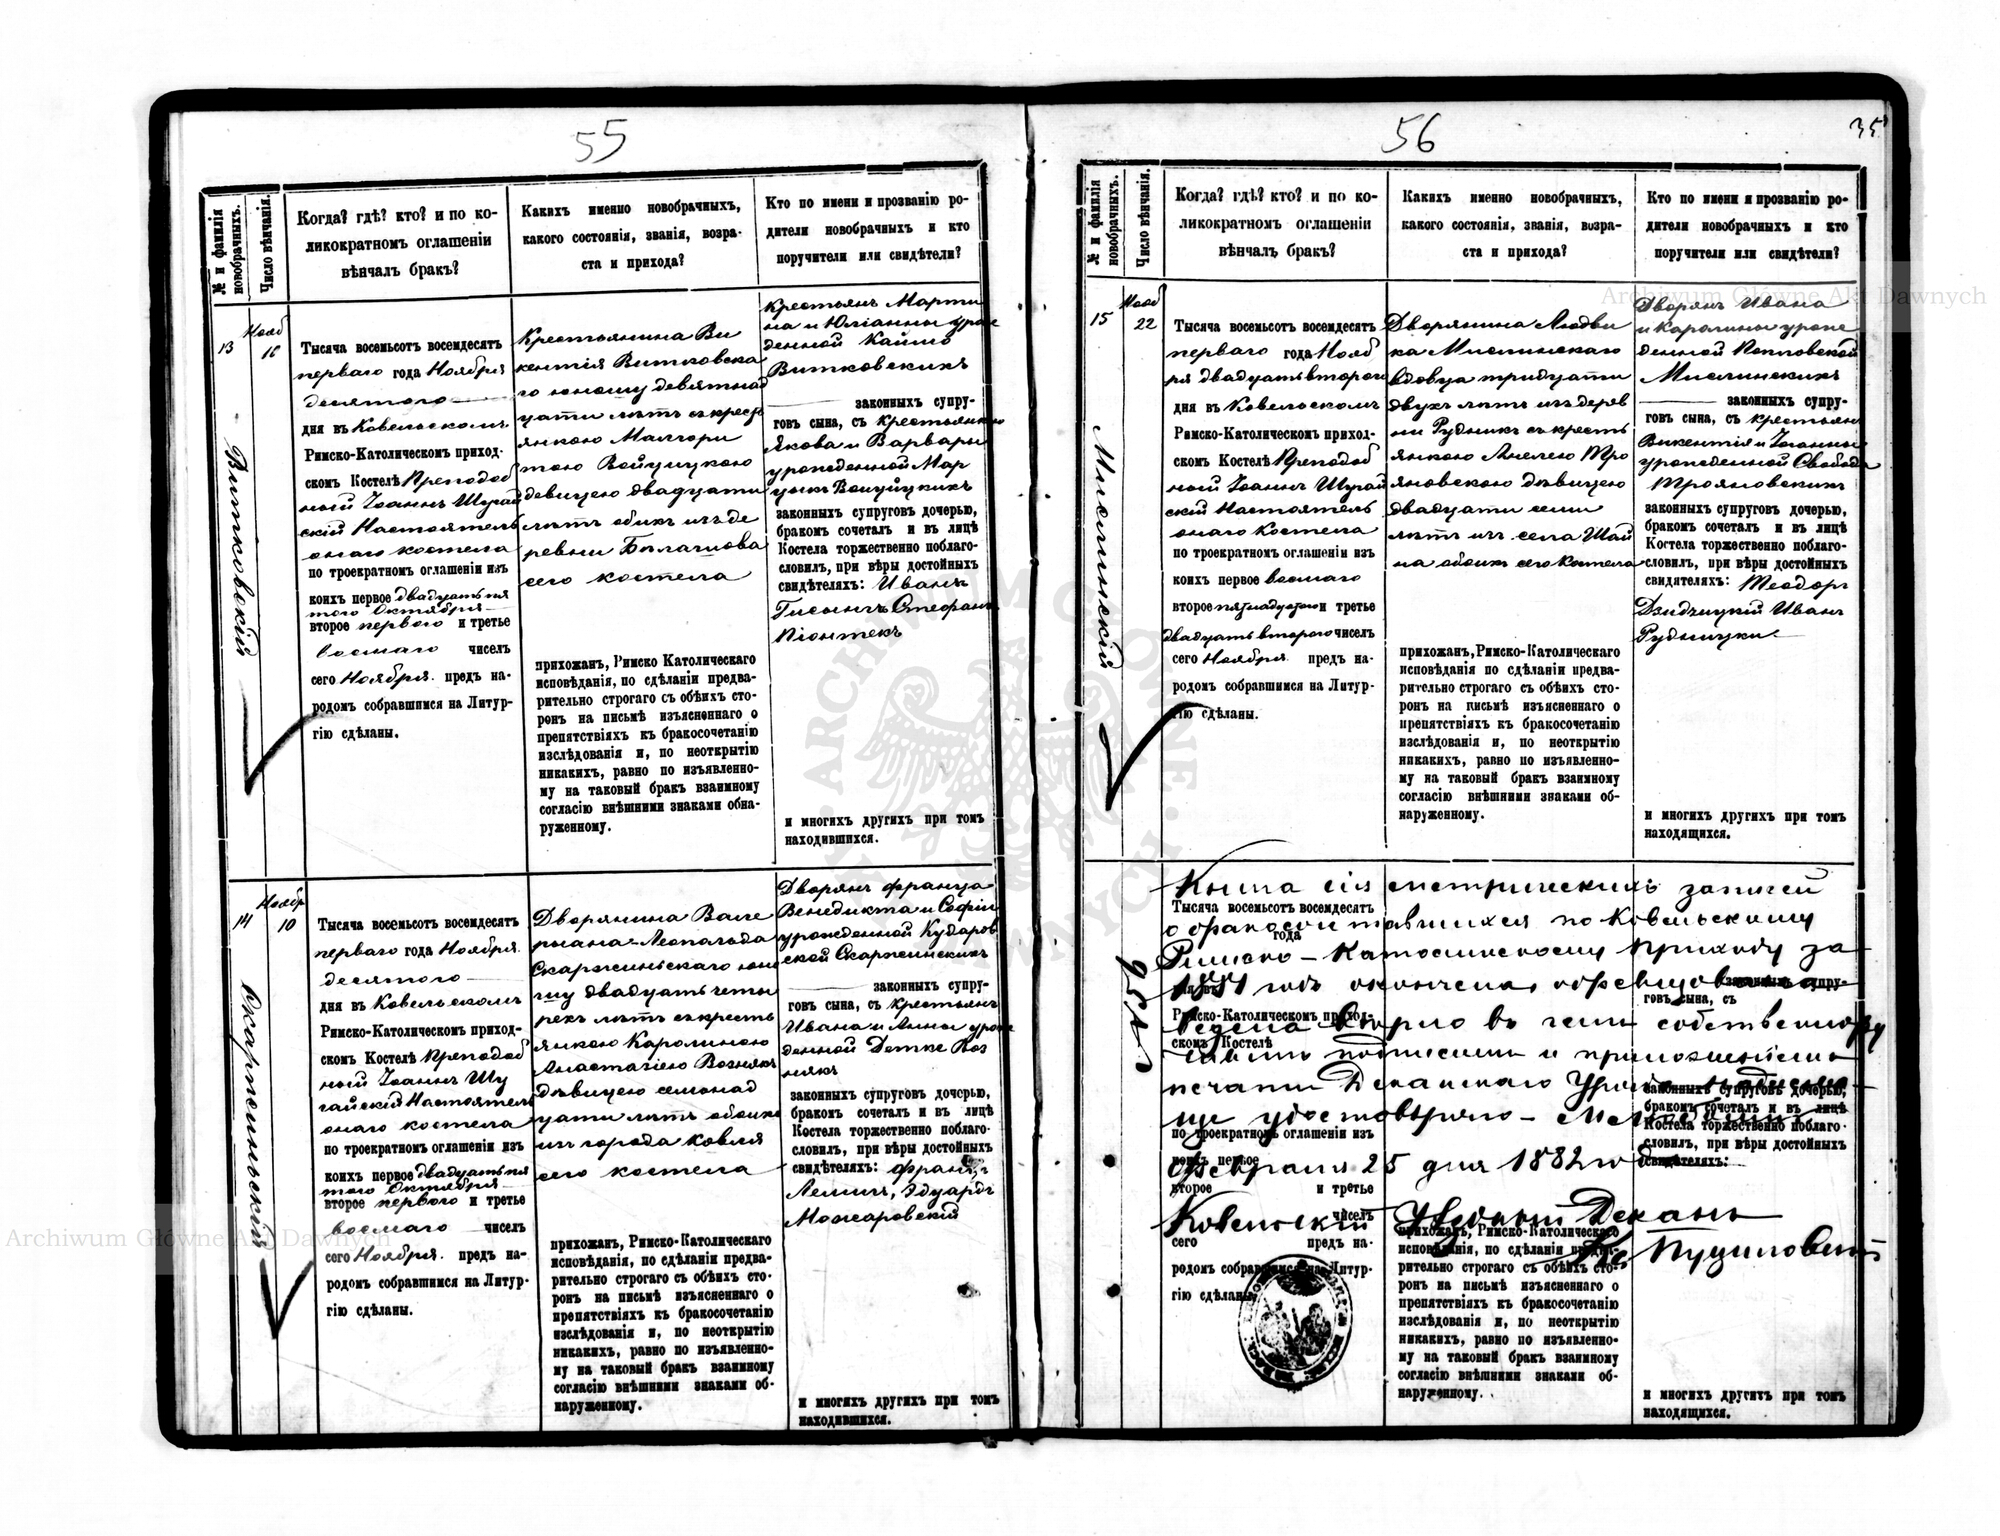 55
№ и фамилія новобрачныхъ.
Число вѣнчанія.
Когда? гдѣ? кто? и по ко-
ликократномъ оглашеніи
вѣнчалъ бракъ?
Какихъ именно новобрачныхъ,
какого состоянія, званія, возра-
ста и прихода?
Кто по имени и прозванію ро-
дители новобрачныхъ и кто
поручители или свидѣтели?
13
Нояб
Витковскій
Тысяча восемьсотъ восемдесятъ
перваго года Ноября
десятого
дня въ Ковельскомъ
Римско-Католическомъ приход-
скомъ Костелѣ Преподоб
ный Іоаннъ Шугай
скій Настоятель
онаго костела
по троекратномъ оглашеніи изъ
коихъ первое двадцать пя
того Октября
второе перваго и третье
восмаго чиселъ
сего Ноября предъ на-
родомъ собравшимся на Литур-
гію сдѣланы.
Крестьянина Ви
кентія Витковска
го юношу девятнад
цати лѣтъ съ крестъ
янкою Малгори
тою Войцицкою
девицею двадцати
лѣтъ обоихъ изъ де
ревни
сего костела
прихожанъ, Римско Католическаго
исповѣданія, по сдѣланіи предва-
рительно строгаго съ обѣихъ сто-
ронъ на письмѣ изъясненнаго о
препятствіяхъ къ бракосочетанію
изслѣдованія и, по неоткрытію
никакихъ, равно по изъявленно-
му на таковый бракъ взаимному
согласію внѣшними знаками обна-
руженному.
Крестьянъ Марти
на и Юліанны урож
денной
Витковскихъ
законныхъ супру-
говъ сына, съ крестьянкою
Якова и Варвары
урожденной Мар
цыкъ Войцицкихъ
законныхъ супруговъ дочерью,
бракомъ сочеталъ и въ лицѣ
Костела торжественно поблаго-
словилъ, при вѣры достойныхъ
свидѣтеляхъ: Иванъ
Стефанъ
Піонтекъ
и многихъ другихъ при томъ
находившихся.
14
Ноябр
10
Скаржиньскій
Тысяча восемьсотъ восемдесятъ
перваго года Ноября
десятого
дня въ Ковельскомъ
Римско-Католическомъ приход-
скомъ Костелѣ Преподоб
ный Іоаннъ Шу
гайскій Настоятель
онаго костела
по троекратномъ оглашеніи изъ
коихъ первое двадцать пя
того Октября
второе перваго и третье
восмаго чиселъ
сего Ноября предъ на-
родомъ собравшимся на Литур-
гію сдѣланы.
Дворянина Вале
рьяна-Леопольда
Скаржиньскаго юно
шу двадцать четы
рехъ лѣтъ съ крестъ
янкою Каролиною
Анастасіею Вознякъ
дѣвицею семонад
цати лѣтъ обоихъ
изъ города Ковля
сего костела
прихожанъ, Римско-Католическаго
исповѣданія, по сдѣланіи предва-
рительно строгаго съ обѣихъ сто-
ронъ на письмѣ изъясненнаго о
препятствіяхъ къ бракосочетанію
изслѣдованія и, по неоткрытію
никакихъ, равно по изъявленно-
му на таковый бракъ взаимному
согласію внѣшними знаками об-
наруженному.
Дворянъ Франца
Венедикта и Софіи
урожденной Кударов
ской Скаржинскихъ
законныхъ супру-
говъ сына, съ крестьянъ
Ивана и Анны урож
денной Детке Воз
някъ
законныхъ супруговъ дочерью,
бракомъ сочеталъ и въ лицѣ
Костела торжественно поблаго-
словилъ, при вѣры достойныхъ
свидѣтеляхъ: Францъ
Эдуардъ
Можаровскій
и многихъ другихъ при томъ
находившихся.
56
35
№ и фамилія новобрачныхъ.
Число вѣнчанія.
Когда? гдѣ? кто? и по ко-
ликократномъ оглашеніи
вѣнчалъ бракъ?
Какихъ именно новобрачныхъ,
какого состоянія, званія, возра-
ста и прихода?
Кто по имени и прозванію ро-
дители новобрачныхъ и кто
поручители или свидѣтели?
15
Нояб
22
Мислинскій
Тысяча восемьсотъ восемдесятъ
перваго года Нояб
ря двадцать второго
дня въ Ковельскомъ
Римско-Католическомъ приход-
скомъ Костелѣ Преподоб
ный Іоаннъ Шугай
скій Настоятель
онаго Костела
по троекратномъ оглашеніи изъ
коихъ первое восмаго
второе пятнадцатого и третье
двадцать второго чиселъ
сего Ноября предъ на-
родомъ собравшимся на Литур-
гію сдѣланы.
Дворянина Людви
ка Мислинскаго
вдовца тридцати
двухъ лѣтъ изъ дерев
ни Рудникъ съ крестъ
янкою Анелею Тро
яновскою дѣвицею
двадцати семи
лѣтъ изъ села Шай
на обоихъ сего Костела
прихожанъ, Римско-Католическаго
исповѣданія по сдѣланіи предва-
рительно строгаго съ обѣихъ сто-
ронъ на письмѣ изъясненнаго о
препятствіяхъ къ бракосочетанію
изслѣдованія и, по неоткрытію
никакихъ, равно по изъявленно-
му на таковый бракъ взаимному
согласію внѣшними знаками об-
наруженному.
Дворянъ Ивана
и Каролины урож
денной Козловской
Мислинскихъ
законныхъ супру-
говъ сына, съ крестьян
Викентія и Іоанны
урожденной Свобода
Трояновскихъ
законныхъ супруговъ дочерью,
бракомъ сочеталъ и въ лицѣ
Костела торжественно поблаго-
словилъ, при вѣры достойныхъ
свидятеляхъ: Теодоръ
Дзидзицкій Иванъ
Рудницки
и многихъ другихъ при томъ
находящихся.
Книга сія метрическихъ записей
Тысяча восемьсотъ восемдесятъ
о бракосочетавшихся по Ковельскому
года
Римско-Католическому приходу за
1881 годъ окончена,
законныхъ супру-
говъ сына, съ
Римско-Католическомъ приход-
скомъ Костелѣ
въ чемъ собственно ру
чнымъ подписомъ и приложеніемъ
печати Деканскаго
законныхъ супруговъ дочерью,
бракомъ сочеталъ и въ лицѣ
Костела торжественно поблаго-
словилъ, при вѣры достойныхъ
свидѣтеляхъ:
ще удостовѣряю
по троекратномъ оглашеніи изъ
коихъ первое
Февраля 25 дня 1882 года
второе и третье
чиселъ
Ковельскій Уѣздный Деканъ
Кс Пузиловскій
сего предъ на-
родомъ собравшимся на Литур-
гію сдѣланы.
прихожанъ, Римско-Католическаго
исповѣданія, по сдѣланіи предва-
рительно строгаго съ обѣихъ сто-
ронъ на письмѣ изъясненнаго о
препятствіяхъ къ бракосочетанію
изслѣдованія и, по неоткрытію
никакихъ, равно по изъявленно-
му на таковый бракъ взаимному
согласію внѣшними знаками об-
наруженному.
и многихъ другихъ при томъ
находящихся.
Archiwum Główne Akt Dawnych
Archiwum Główne Akt Dawnych